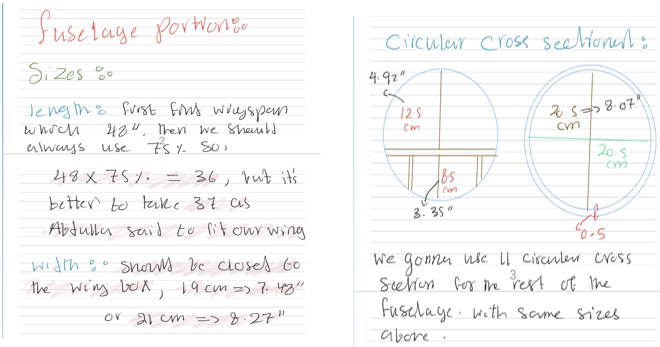 fuselage portion:
Sizes:
length: first find wingspan
which 48", then we should
always use 75%. So,
48 x 75% = 36, but it's
better to take 37 as
Abdulla said to fit our wing
width: should be closed to
the wing box, 19 cm => 7.48"
or 21 cm => 8.27"
Circular cross sectioned:
4.92"
12.5
cm
8.5
cm
3.35"
20.5 => 8.07"
cm
20.5
cm
0.5
we gonna use 11 circular cross
section for the rest of the
fuselage. with same sizes
above.